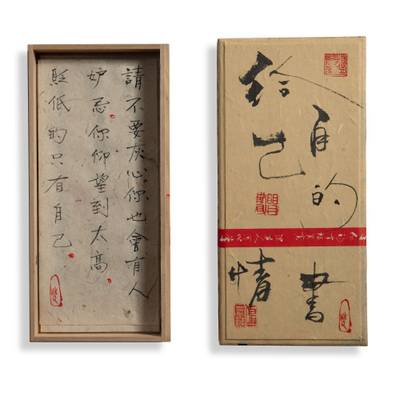 請不要灰心你也會有人
妒忌你仰望到太高
貶低的只有自己
給自
己的
情書